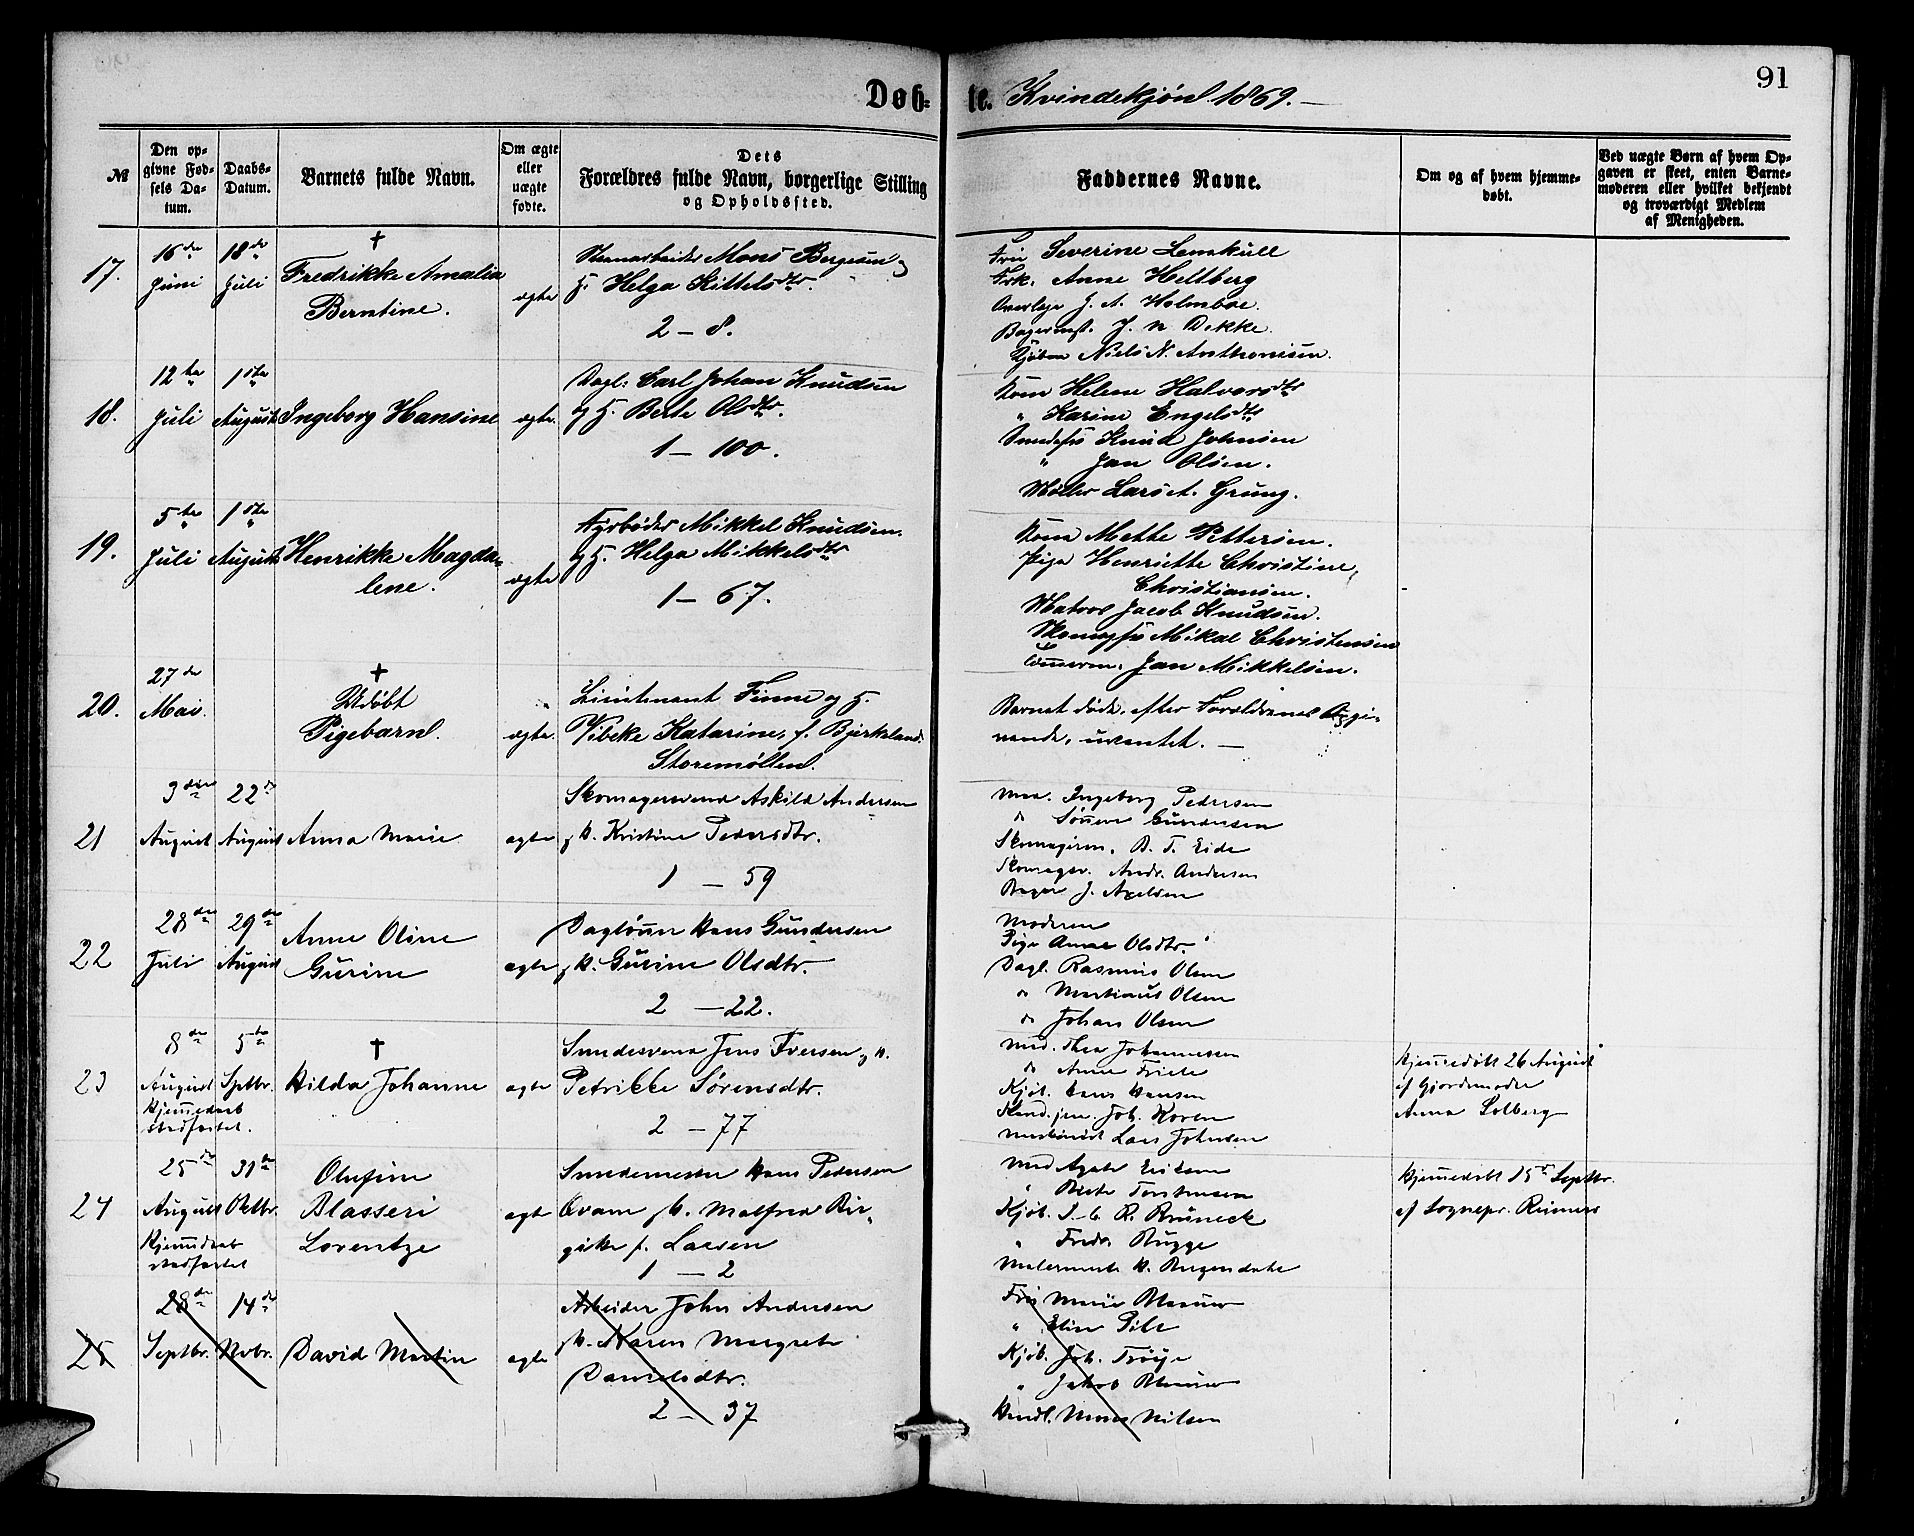 91
Døb- te. Kvindekjøn 1869.
№
Den op-
givne Fød-
sels Da-
tum.
Daabs-
Datum.
Barnets fulde Navn.
Om ægte
eller
uægte
fødte.
Dets
Forældres fulde Navn, borgerlige Stilling
og Opholdssted.
Faddernes Navne.
Om og af hvem hjemme-
døbt.
Ved uægte Børn af hvem Op-
gaven er skeet, enten Barne-
moderen eller hvilket bekjendt
og troværdigt Medlem
af Menigheden.
17.
16de
Juni
18de
Juli
†
Fredrikke Amalia
Berntine.
ægte
Mons Børgesen og
H. Helga Kittelsdtr.
2 – 8.
Severine
Frk. Anne Heltberg
J. A. Holmboe.
J. N. Dekke.
Niels N. Anthonisen.
18.
12te
Juli
1ste
August
Ingeborg Hansine
ægte.
Dagl: Carl Johan Knudsen
og H. Berte Olsdtr.
1 – 100.
Kone Helene Halvorsdtr
" Karine Engelsdtr
Knud Johnsen
" Jan Olsen.
Møller Lars A. Grung.
19.
5te
Juli
1ste
August
Henrikke Magda-
lene.
ægte
Fyrbøder Mikkel Knudsen.
og H. Helga Mikkelsdtr
1 – 67.
Kone Mette Pettersen.
Pige Henriette Christine,
Christiansen.
Matros Jacob Knudsen.
Mikal Christensen
Jan Mikkelsen.
20.
27de
Mai.
†
Udøbt
Pigebarn.
ægte.
Lieutenant Finne og H.
Vibeke Katarine, f. Bjerkeland.
Storemøllen.
Barnet døde, efter Forældrenes Angi-
vende, uventet. —
21
3die
August
22de
August
Anna Marie
ægte
Skomagersvend Askild Andersen
og H. Kristine Pedersdtr.
1 – 59
Mad. Ingeborg Pedersen
do Gundersen
Skomagersv. B. T. Eide
Skomager. Andr. Andersen
Bager J. Axelsen
22
28de
Juli
29de
August
Anne Oline
Gurine
ægte
Dagløner Hans Gundersen
og H. Gurine Olsdtr.
2 – 22.
Moderen
Pige Anne Olsdtr.
Dagl. Rasmus Olsen
do Martinus Olsen
do Johan Olsen
23
8de
August
Hjemmedaab
stadfæstet.
5te
Septbr.
†
Hilda Johanne
ægte
Smedesvend Jens Iversen og H.
Petrikke Sørensdtr.
2 – 77
Mad. Thea Johannessen
do Anne Friele
Kjøb. Hans Hansen
Joh. Koren
Lars Johnsen
Hjemmedøbt 26 August
af Gjordemoder
Anna Solberg
24
25de
August
Hjemmedaab
stadfæstet
31te
Oktbr.
Olufine
Blasseri
Lorentze
ægte
Smedemester Hans Pedersen
Qvam og H. Malfred Bir-
gitte f. Larsen
1 – 2
Mad Agate Eriksen
" Berte Torstensen
Kjøb. R. Bruneck
" Fredr. Bugge
Malermester H. Bergendahl
Hjemmedøbt 15de Septbr.
af Sognepr. Reimers
25
28de
Septbr.
14de
Novbr.
David Martin
ægte
Arbeider John Andersen
og H. Karen Margrete
Danielsdtr.
2 – 37
Marie
" Elin Pihl
Kjøb. Joh. Trøye
" Jakob
Handl. Mons Nilsen